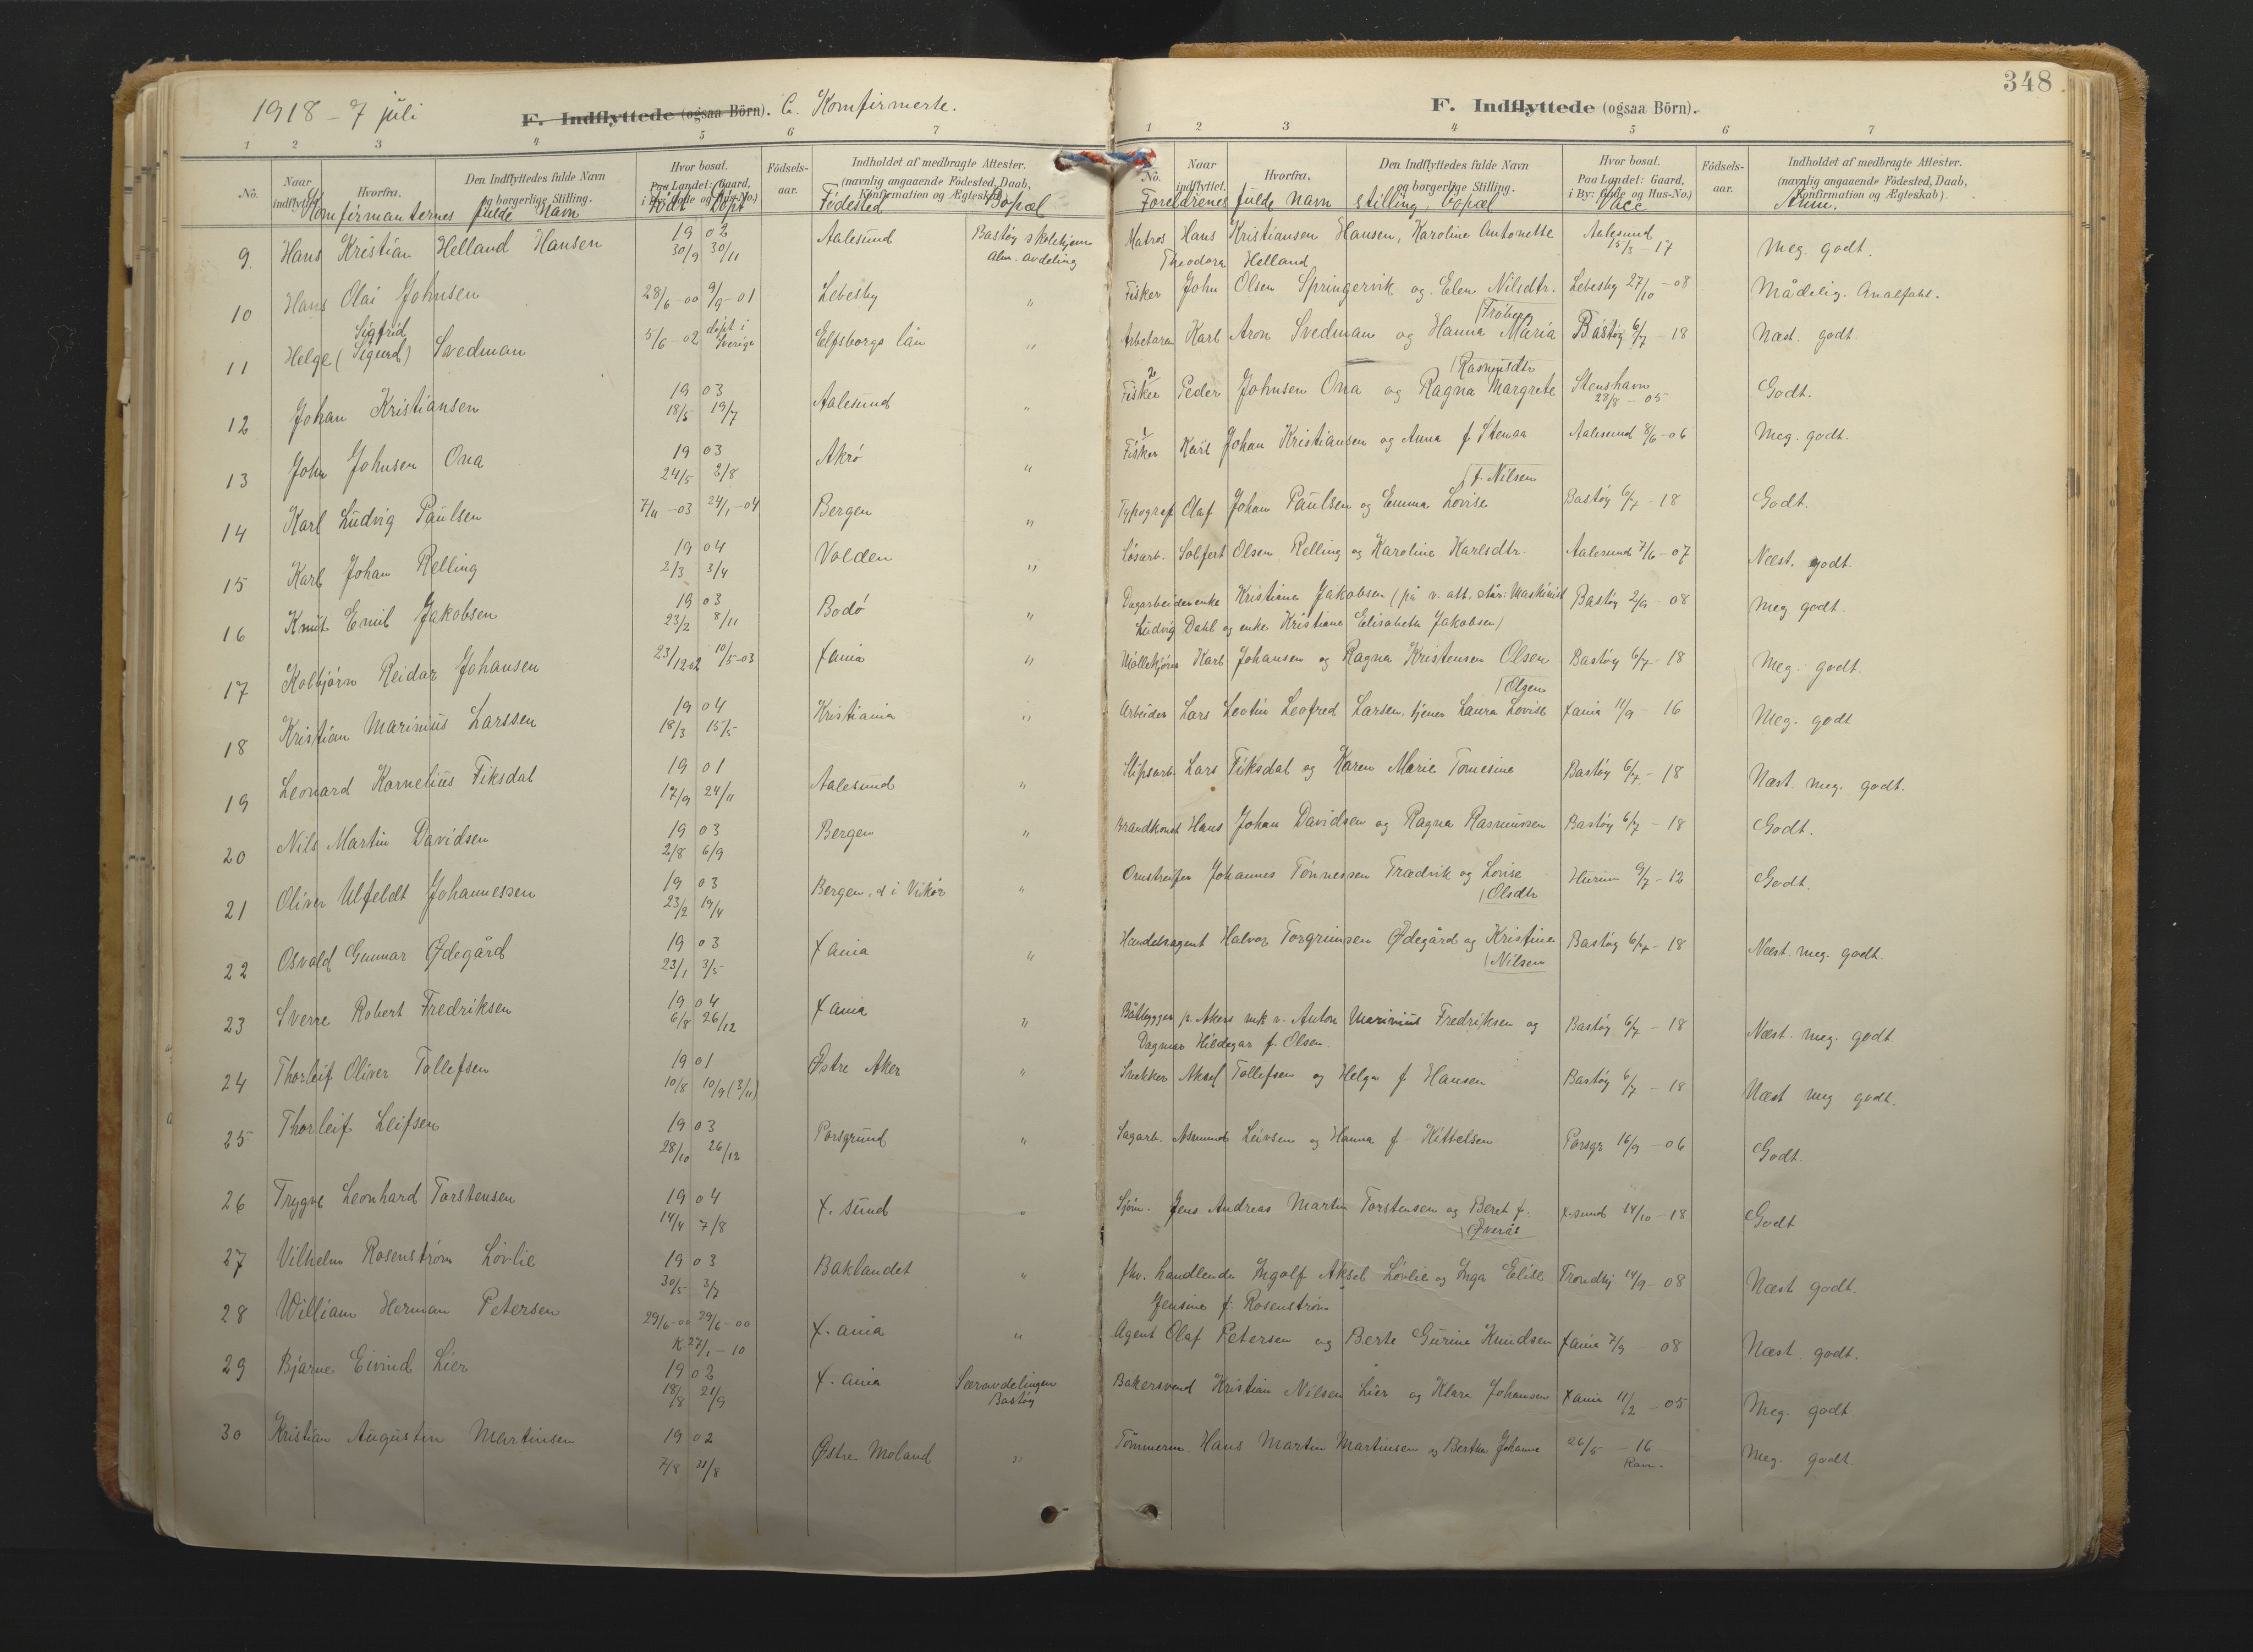 348
1918 – 7 juli
F. Indflyttede (ogsaa Börn). C. Komfirmerte.
1 2 3 4 5 6 7
No.
Naar indflyttet.
Hvorfra.
Den Indflyttedes fulde Navn og borgerlige Stilling.
Hvor bosat. Paa Landet: Gaard, i By: Gade og Hus-No.)
Födsels-aar.
Indholdet af medbragte Attester. (navnlig angaaende Födested, Daab, Konfirmation og Ægteskab).
Komfirmanternes fulde Navn Född Döpt Födested Bopæl
9. Hans Kristian Helland Hansen 1902 30/9 30/11 Aalesund Bastøy skolehjem
Alm. avdeling
10 Hans Olai Johnsen 28/6-00 9/9-01 Lebesby "
11 Helge (Sigurd) Sigfrid Svedman 5/6-02 döpt i Sverige Elfsborgs län "
12 Johan Kristiansen 1903 18/5 19/7 Aalesund "
13 John Johnsen Ona 1903 24/5 2/8 Akrö "
14 Karl Ludvig Paulsen 7/11-03 24/1-04 Bergen "
15 Karl Johan Relling 1904 2/3 3/4 Volden "
16 Knut Emil Jakobsen 1903 23/2 8/11 Bodö "
17 Kolbjörn Reidar Johansen 23/12 02 10/5-03 Xania "
18 Kristian Marinius Larssen 1904 18/3 15/5 Kristiania "
19 Leonard Kornelius Fiksdal 1901 17/9 24/11 Aalesund "
20 Nils Martin Davidsen 1903 2/8 6/9 Bergen "
21 Oliver Ulfeldt Johannessen 1903 23/2 19/4 Bergen, d i Vikör "
22 Osvald Gunnar Ødegård 1903 23/1 3/5 Xania "
23 Sverre Robert Fredriksen 1904 6/8 26/12 Xania "
24 Thorleif Oliver Tollefsen 1901 10/8 10/9 (3/11) Østre Aker "
25 Thorleif Leifsen 1903 28/10 26/12 Porsgrund "
26 Trygve Leonhard Torstensen 1904 14/4 7/8 X. sund "
27 Vilhelm Rosenström Lövlie 1903 30/5 3/7 Baklandet "
28 William Herman Petersen 29/6-00 29/6-00 K. 27/1-10 X. ania "
29 Bjarne Eivind Lier 1902 18/8 21/9 X. ania Særavdelingen
Bastøy
30 Kristian Augustin Martinsen 1902 7/8 31/8 Østre Moland "
F. Indflyttede (ogsaa Börn).
1 2 3 4 5 6 7
No.
Naar indflyttet.
Hvorfra.
Den Indflyttedes fulde Navn og borgerlige Stilling.
Hvor bosat. Paa Landet: Gaard, i By: Gade og Hus-No.)
Födsels-aar.
Indholdet af medbragte Attester. (navnlig angaaende Födested, Daab, Konfirmation og Ægteskab).
Foreldrenes fulde Navn stilling, bopæl Vacc Anm.
Matros Hans Kristiansen Hansen, Karoline Antonette Aalesund 15/3-17 Meg. godt.
Theodora Helland
Fisker John Olsen Springervik og Elen Nilsdtr. Lebesby 27/10-08 Mådelig. Analfabt.
Fröberg
Arbetaren Karl Aron Svedman og Hanna Maria Bastöy 6/7-18 Næst. godt.
Rasmusdtr
2 Fisker Peder Johnsen Ona og Ragna Margrete Stenshavn 28/8-05 Godt.
1 Fisker Karl Johan Kristiansen og Anna f. Stenaa Aalesund 8/6-06 Meg. godt.
f. Nilsen
Typograf Olaf Johan Paulsen og Emma Lovise Bastöy 6/7-18 Godt.
Lösarb. Solfert Olsen Relling og Karoline Karlsdtr. Aalesund 7/6-07 Næst. godt.
Dagarbeiderenke Kristiane Jakobsen (på v. att. står: Maskinist Bastöy 2/9-08 Meg godt.
Ludvig Dahl og enke Kristiane Elisabeth Jakobsen)
Möllekjörer Karl Johansen og Ragna Kristensen Olsen Bastöy 6/7-18 Meg. godt.
Olsen
Arbeider Lars Leotin Leofred Larsen, tjener Laura Lovise Xania 11/9-16 Meg. godt
Slipsarb. Lars Fiksdal og Karen Marie Tomesine Bastöy 6/7-18 Næst. meg. godt.
Brandkonst Hans Johan Davidsen og Ragna Rasmussen Bastöy 6/7-18 Godt.
Omstreifer Johannes Tönnessen Trædvik og Lovise Hurum 9/7-12 Godt.
Olsdtr
Handelsagent Halvor Torgrimsen Ødegård og Kristine Bastöy 6/7-18 Næst. meg. godt.
Nilsen
Båtbygger p. Akers mk v. Anton Marinius Fredriksen og Bastöy 6/7-18 Næst. meg. godt
Dagmar Hildegar f. Olsen.
Snekker Aksel Tollefsen og Helga f. Hansen Bastöy 6/7-18 Næst meg godt.
Sagarb. Asmund Leivsen og Hanna f. Kittelsen Porsgr 16/9-06 Godt.
Sjöm. Jens Andreas Martin Torstensen og Beret f. X-sund 14/10-18 Godt
Øverås
fhv. handlende Ingolf Aksel Lövlie og Inga Elise Trondhj 14/9-08 Næst godt.
Jensine f. Rosenström
Agent Olaf Petersen og Berte Gurine Knudsen Xania 7/9-08 Næst. godt.
Bakersvend Kristian Nilsen Lier og Klara Johansen Xania 11/2-05 Meg. godt
Tömmerm. Hans Martin Martinsen og Bertha Johanne 26/5-16 Meg. godt.